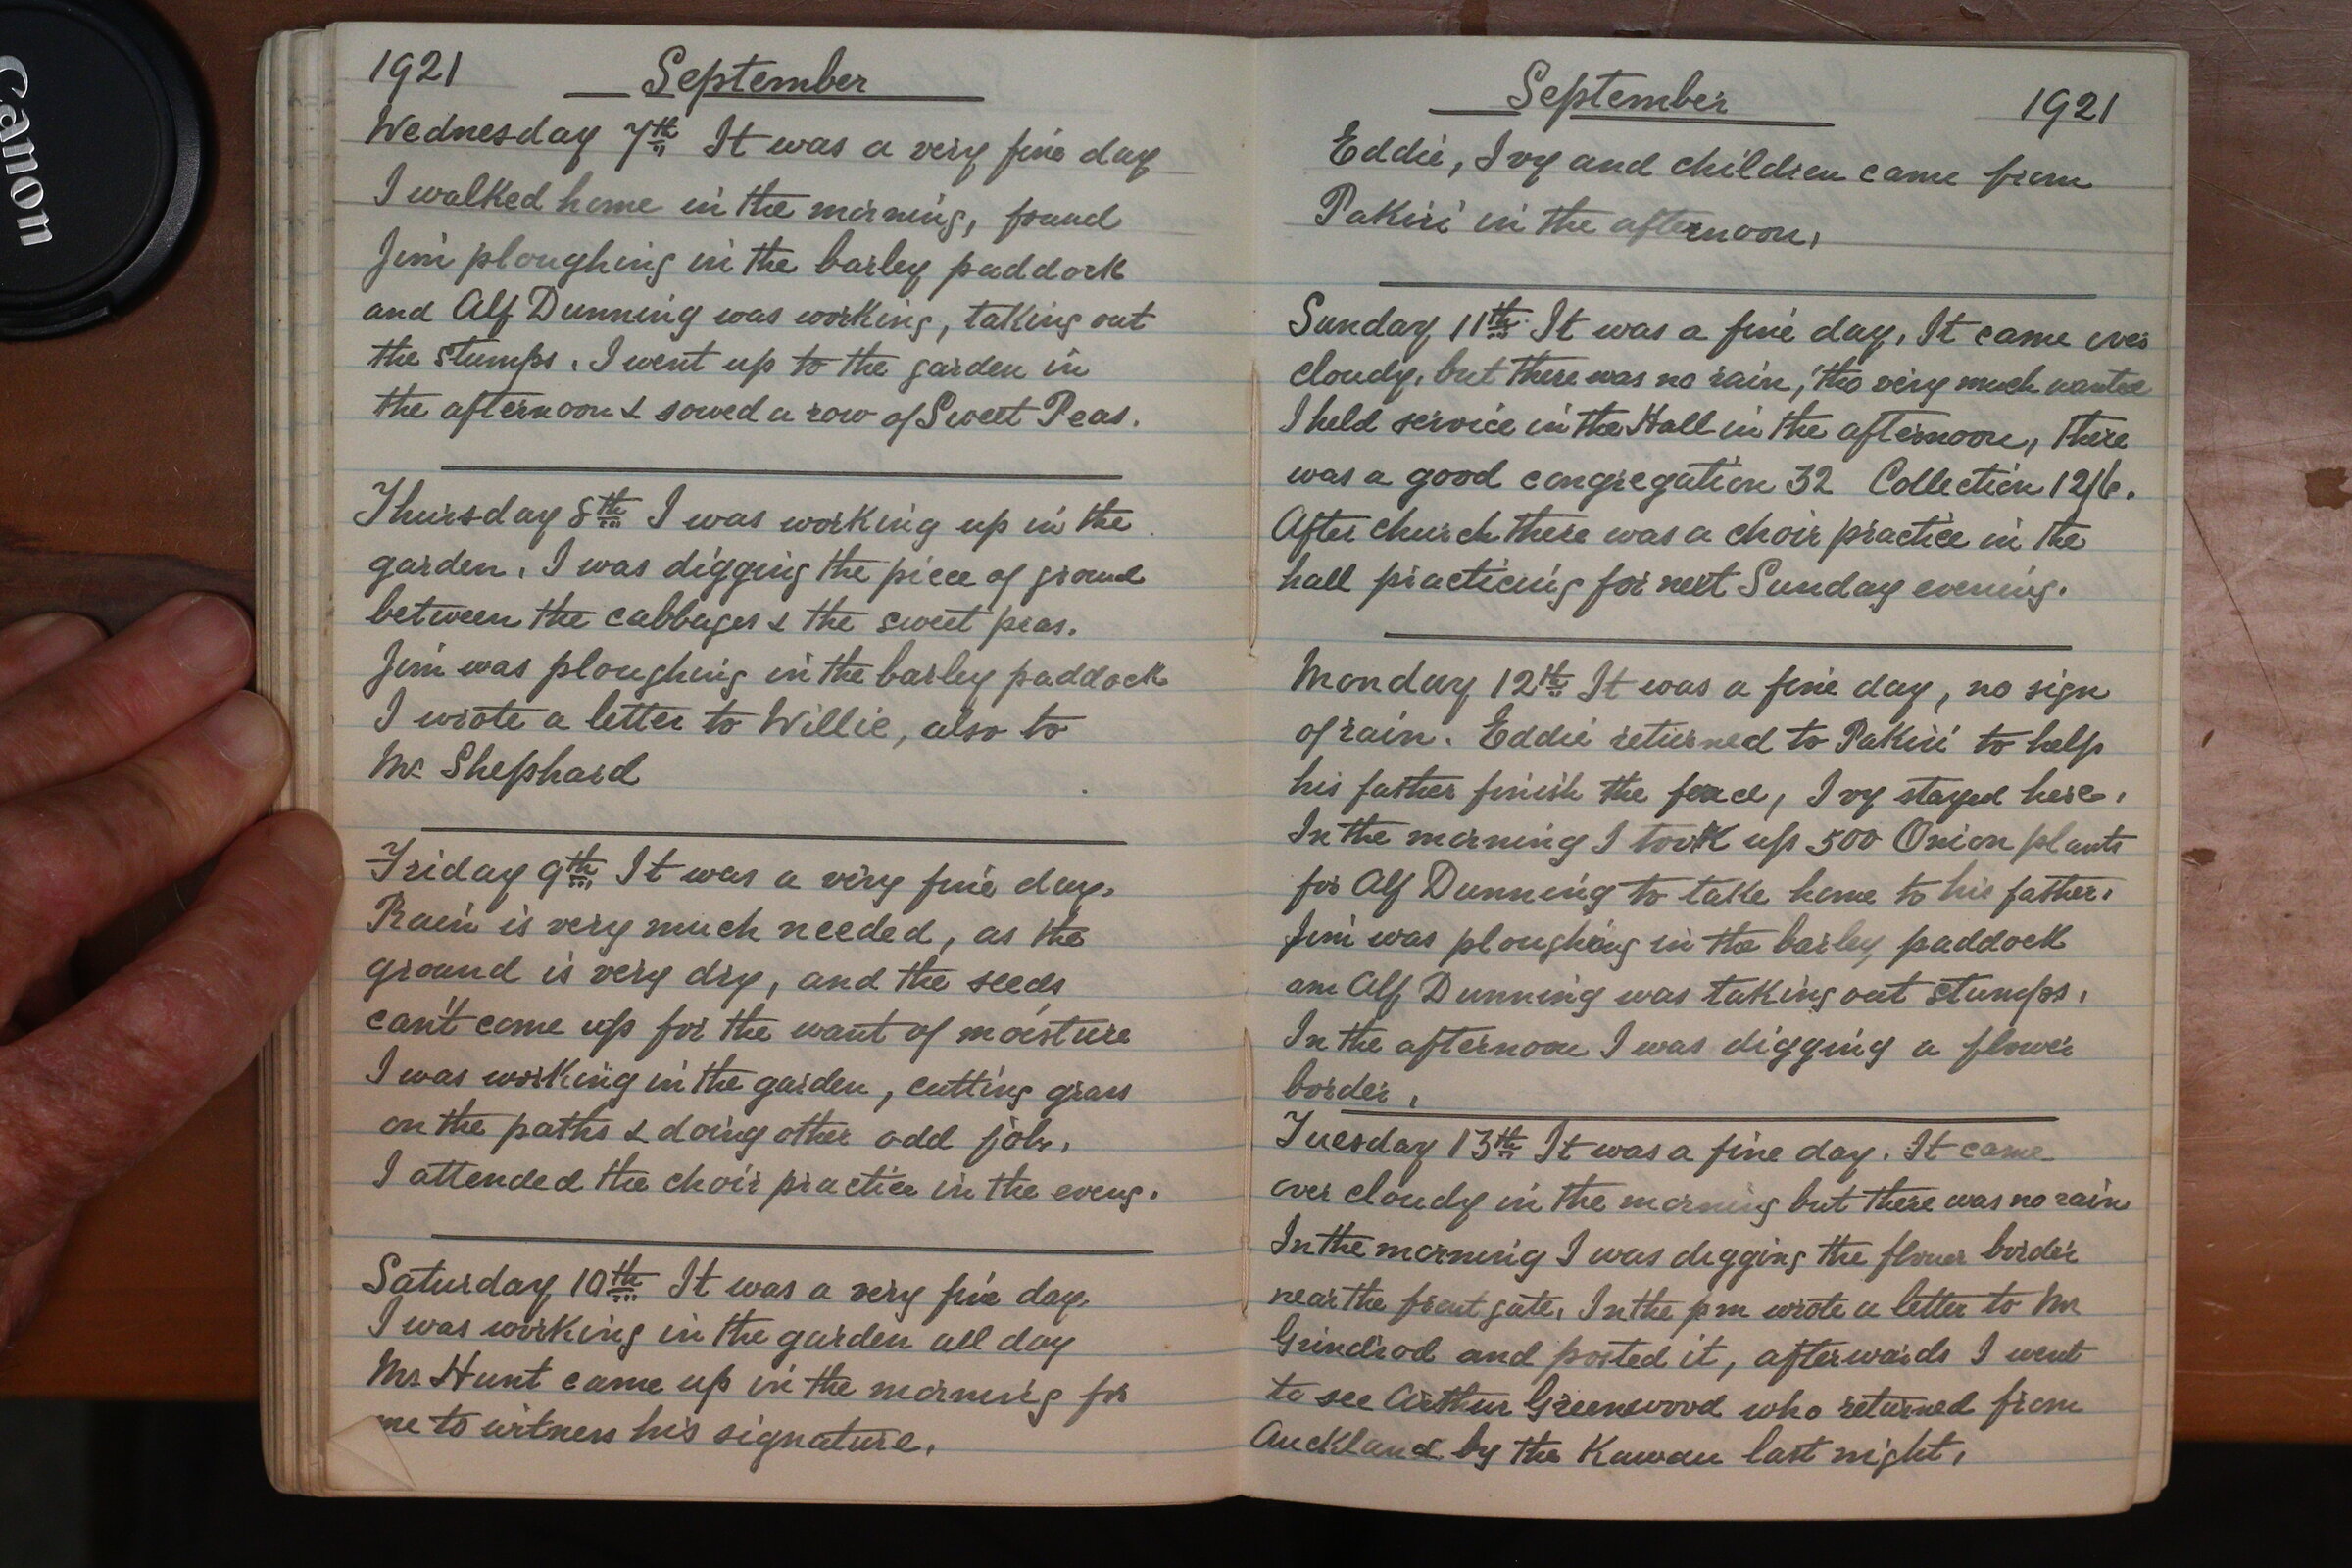 Canon
1921 September
Wednesday 7th It was a very fine day
I walked home in the morning, found
Jim ploughing in the barley paddock
and Alf Dunning was working, taking out
the stumps. I went up to the garden in
the afternoon & sowed a row of Sweet Peas.
Thursday 8th I was working up in the
garden. I was digging the piece of ground
between the cabbages & the sweet peas.
Jim was ploughing in the barley paddock
I wrote a letter to Willie, also to
Mr Shephard
Friday 9th It was a very fine day.
Rain is very much needed, as the
ground is very dry, and the seeds
can't come up for the want of moisture
I was working in the garden, cutting grass
on the paths & doing other odd jobs.
I attended the choir practice in the eveng.
Saturday 10th It was a very fine day.
I was working in the garden all day
Mr Hunt came up in the morning for
me to witness his signature.
September 1921
Eddie, Ivy and children came from
Pakiri in the afternoon.
Sunday 11th It was a fine day. It came over
cloudy, but there was no rain, 'tho very much wanted
I held service in the Hall in the afternoon, There
was a good congregation 32 Collection 12/6.
After church there was a choir practice in the
hall practicing for next Sunday evening.
Monday 12th It was a fine day, no sign
of rain. Eddie returned to Pakiri to help
his father finish the fence, Ivy stayed here.
In the morning I took up 500 Onion plants
for Alf Dunning to take home to his father.
Jim was ploughing in the barley paddock
am Alf Dunning was taking out stumps.
In the afternoon I was digging a flower
border.
Tuesday 13th It was a fine day. It came
over cloudy in the morning but there was no rain
In the morning I was digging the flower border
near the front gate. In the pm wrote a letter to Mr
Grindrod and posted it, afterwards I went
to see Arthur Greenwood who returned from
Auckland by the Kawau last night.